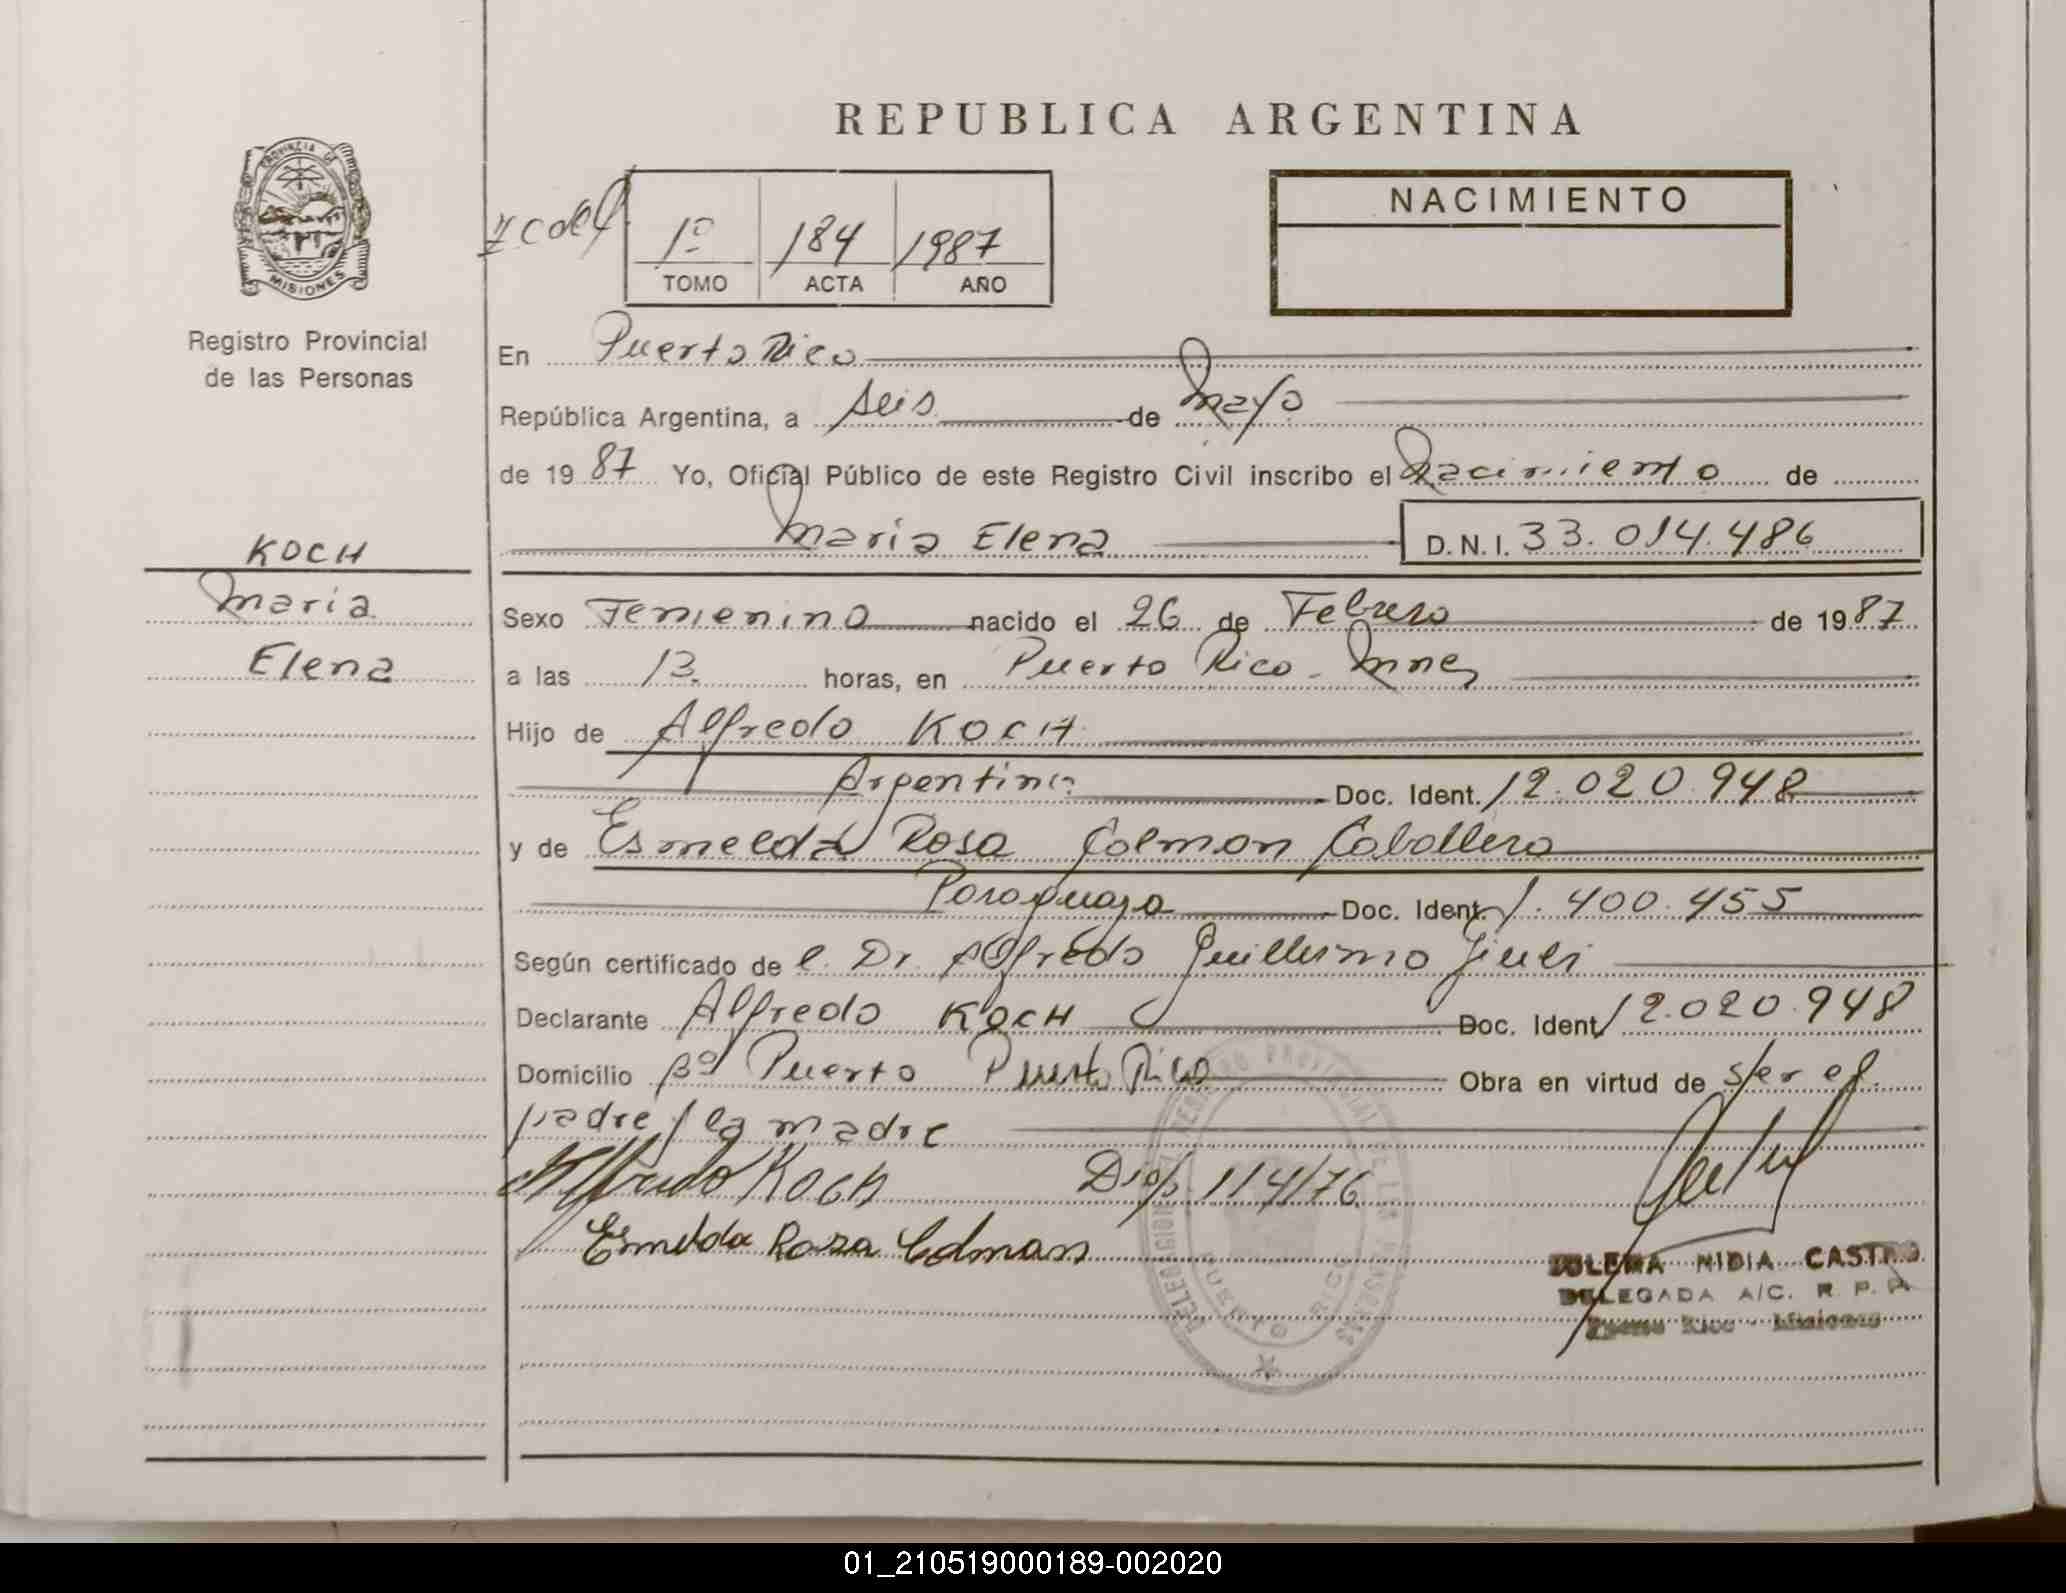 REPUBLICA ARGENTINA
PROVINCIA DE
MISIONES
Registro Provincial
de las Personas
1º 184 1987
TOMO ACTA AÑO
NACIMIENTO
En Puerto Rico
República Argentina, a seis de Mayo
de 19 87 Yo, Oficial Público de este Registro Civil inscribo el Nacimiento de
Maria Elena D.N.I. 33.014.486
KOCH
Maria
Elena
Sexo Femenino nacido el 26 de Febrero de 19 87
a las 13 horas, en Puerto Rico - Mnes
Hijo de Alfredo KOCH
Argentino Doc. Ident. 12.020.948
y de Esmelda Rosa Colman Caballero
Paraguaya Doc. Ident. 1.400.455
Según certificado de l. Dr. Alfredo Guillermo
Declarante Alfredo KOCH Doc. Ident. 12.020.948
Domicilio Bº Puerto Puerto Rico Obra en virtud de ser el
padre y la madre
Alfredo KOCH Disp. 114/76
Esmelda Rosa Colman
DELEGACION REGISTRO PROVINCIAL DE LAS PERSONAS
PUERTO RICO
ZULEMA NIDIA CASTRO
DELEGADA A/C. R. P. P.
Puerto Rico - Misiones
01_210519000189-002020